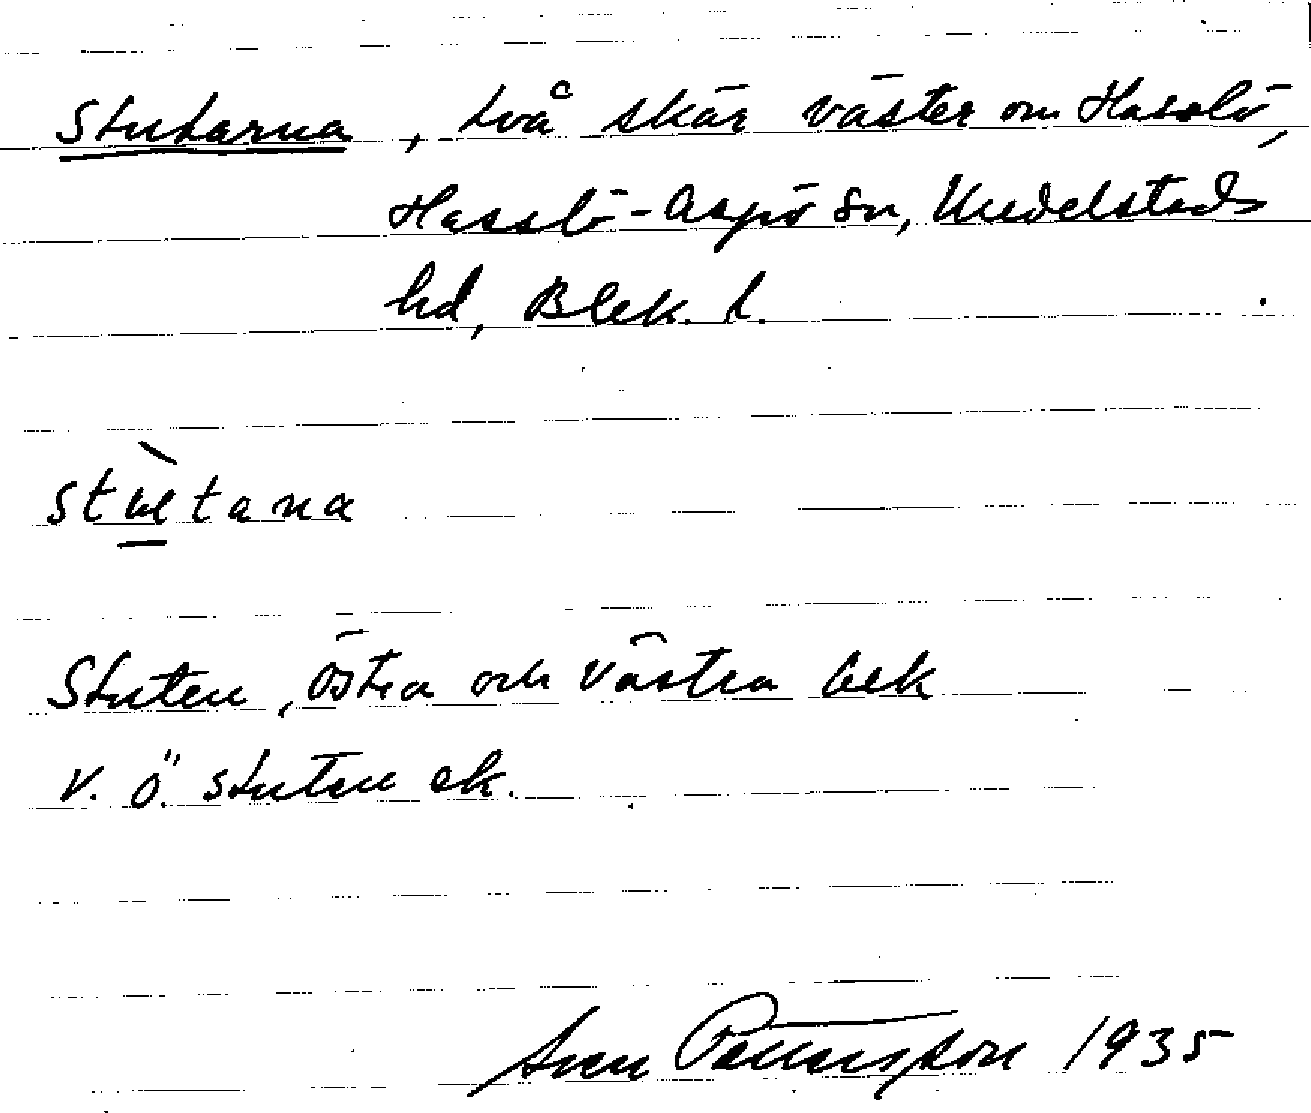 Stutarna, två skär väster om Hasslö,
Hasslö-Aspö sn, Medelstads
hd, Blek. l.
stù̱tana
Stuten, östra och västra bek
V. Ö. stuten ek.
Sven Pettersson 1935